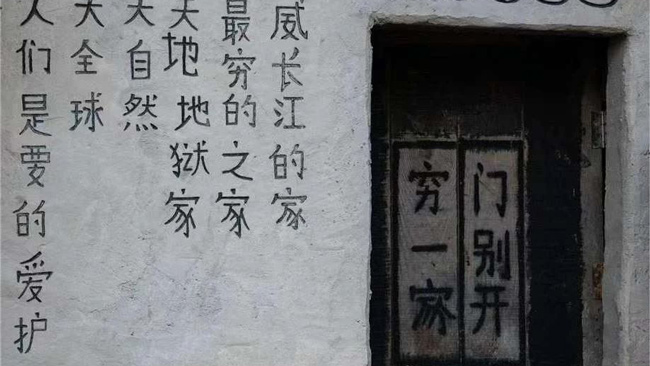 门别开
穷一家
威长江的家
最穷的之家
天地地狱家
大自然
大全球
人们是要的爱护